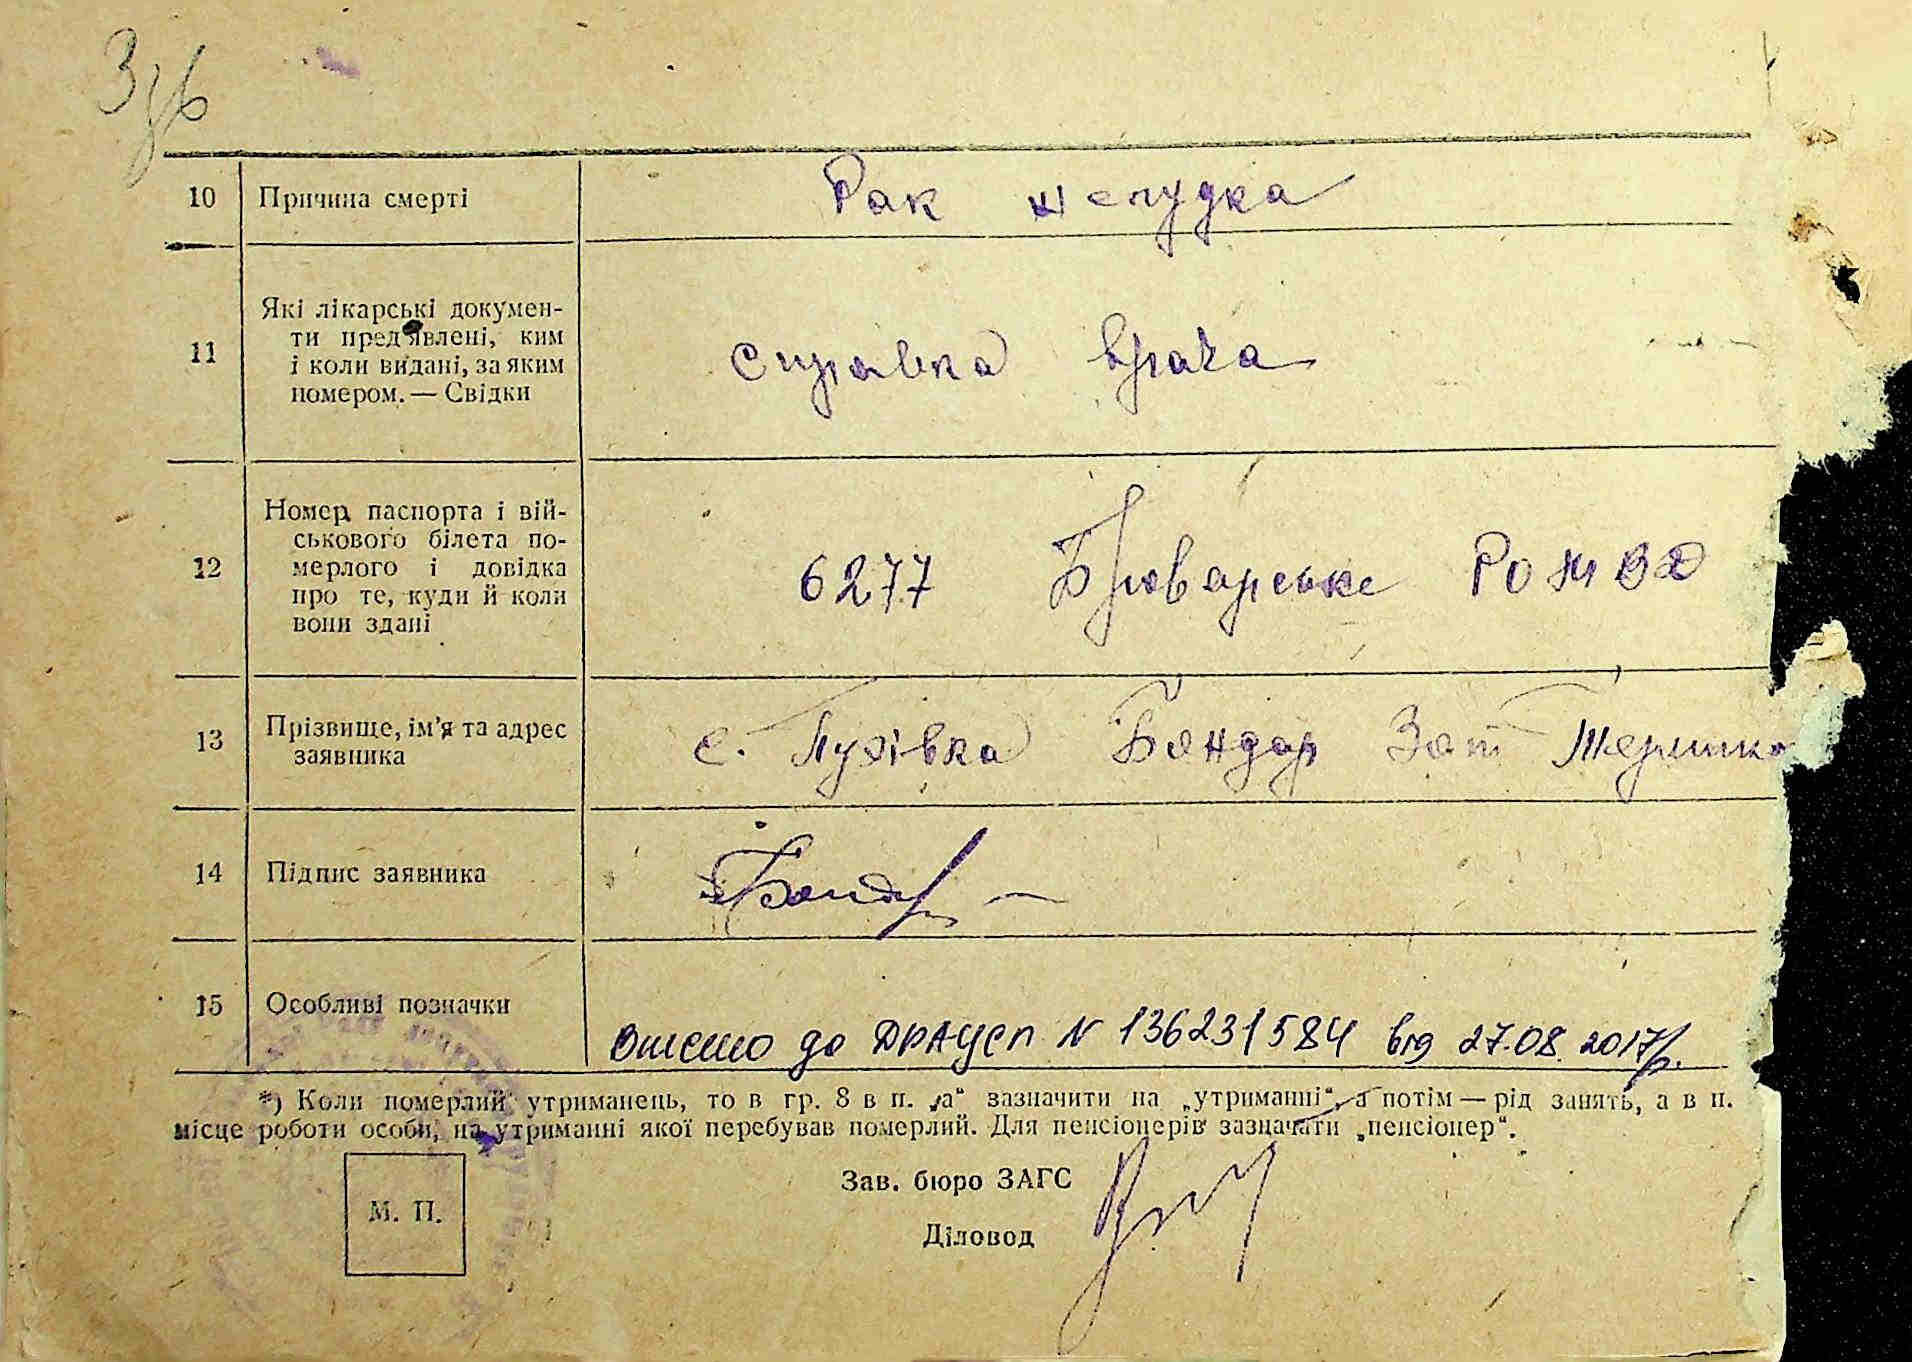 Зув
10 Причина смерті Рак желудка
11 Які лікарські докумен-
ти пред'явлені, ким
і коли видані, за яким
номером. — Свідки
Справка врача
12 Номер паспорта і вій-
ськового білета по-
мерлого і довідка
про те, куди й коли
вони здані
6277 Броварське РОМВД
13 Прізвище, ім'я та адрес
заявника
с. Пухівка Бондар
14 Підпис заявника Бондар
15 Особливі позначки
Внесено до ДРАЦСГ N 136231584 від 27.08.2017р.
*) Коли померлий утриманець, то в гр. 8 в п. „а“ зазначити на „утриманні“, а потім — рід занять, а в п.
місце роботи особи, на утриманні якої перебував померлий. Для пенсіонерів зазначати „пенсіонер“.
М. П.
Зав. бюро ЗАГС
Діловод